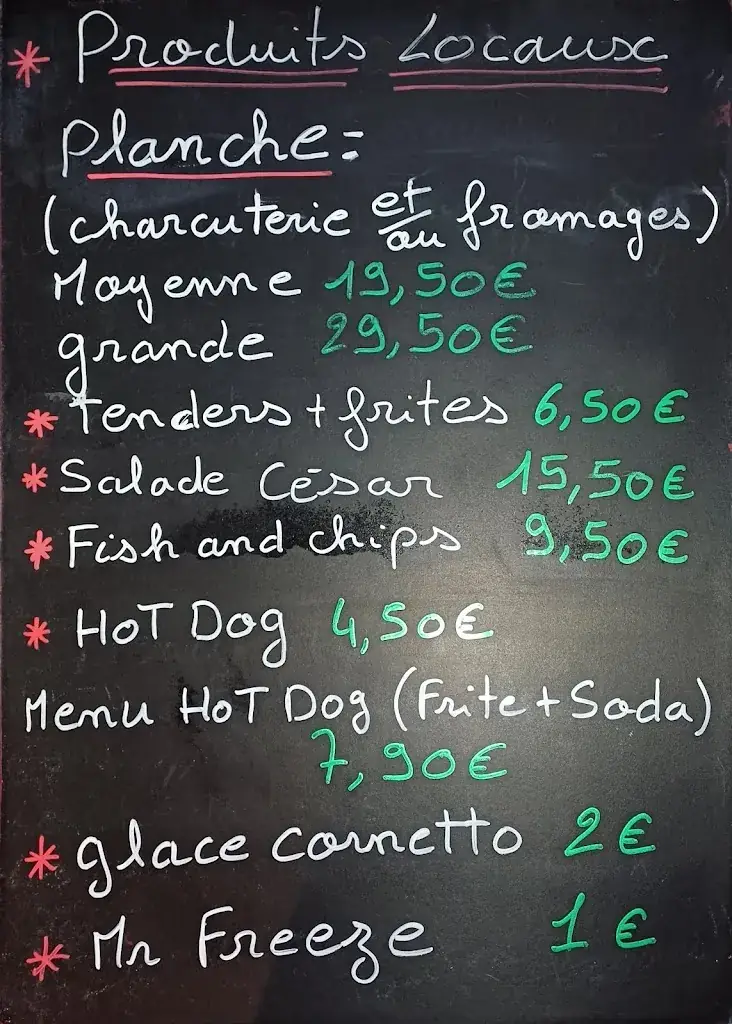 * Produits Locaux
Planche =
(charcuterie et/ou fromages)
Moyenne 19,50€
grande 29,50€
* Tenders + frites 6,50€
* Salade César 15,50€
* Fish and chips 9,50€
* HoT Dog 4,50€
Menu HoT Dog (Frite + Soda)
7,90€
* glace cornetto 2€
* Mr Freeze 1€